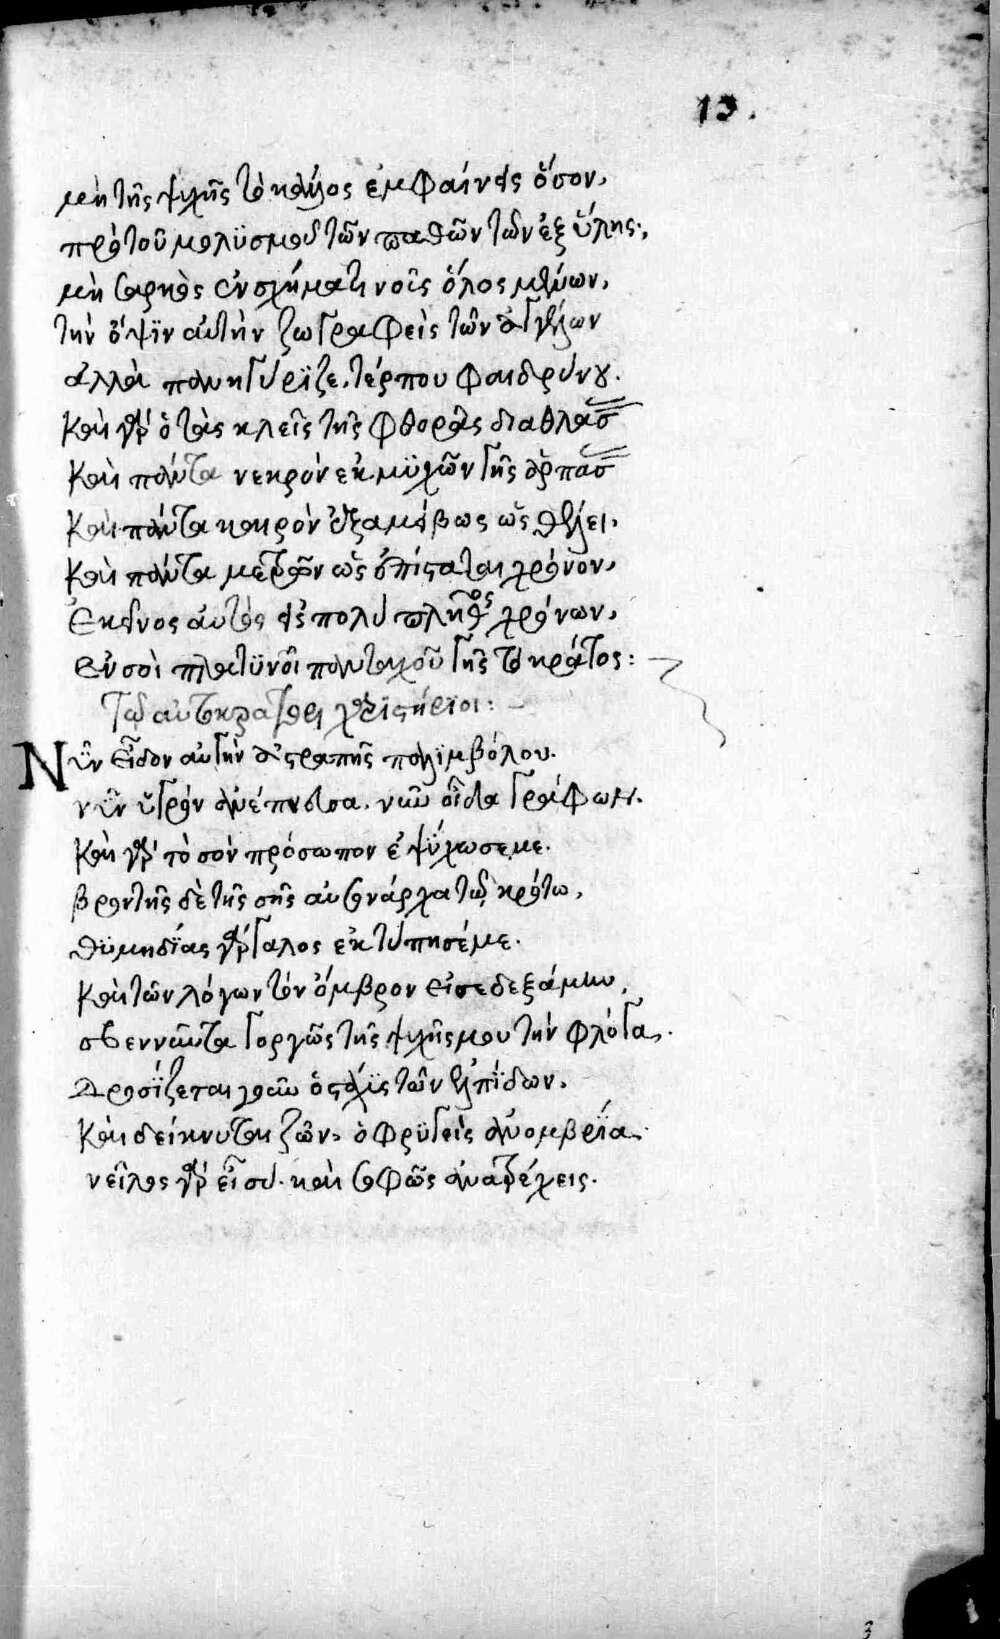 13.
μὴ τῆς ψυχῆς τὸ κάλλος ἐμφαίνεις ὅσον,
πρὸ τοῦ μολϋσμοῦ τῶν παθῶν τῶν ἐξ ὕλης·,
μὴ σαρκὸς ἐν σχήματι νοῦς ὅλος μένων,
τὴν ὄψϊν αὐτὴν ζωγραφεῖς τῶν ἀγγέλων
ἀλλὰ πανηγύρϊζε, τέρπου φαιδρύνου.
καὶ γὰρ ὁ τὰς κλεῖς τῆς φθορᾶς διαθλάσας
καὶ πάντα νεκρὸν ἐκ μϋχῶν γῆς ἁρπάσας
καὶ πάντα καιρὸν ἐξαμείβων ὡς θέλει,
καὶ πάντα μετρῶν ὡς ἐπίσταται χρόνον,
ἐκεῖνος αὐτὸς εἰς πολὺ πλῆθος χρόνων,
ἐν σοὶ πλατϋνοῖ πανταχοῦ γῆς τὸ κράτος:
Τῷ αὐτοκράτορι χαρϊστήρϊοι:
Νῦν εἶδον αὐγὴν ἀστραπῆς παλϊμβόλου.
νῦν ὑγρὸν ἀνέπνευσα. νῦν οἶδα γράφων.
καὶ γὰρ τὸ σὸν πρόσωπον ἐψύχωσέ με.
βροντῆς δὲ τῆς σῆς αὐσονάρχα τῷ κρότω,
θϋμηδίας γὰρ γάλος ἐκτύπησέ με.
καὶ τῶν λόγων τὸν ὄμβρον εἰσεδεξάμην,
σβεννῦντα γοργῶς τῆς ψυχῆς μου τὴν φλόγα,
δροσίζεται γοῦν ὁ στάχϋς τῶν ἐλπίδων.
καὶ δείκνυται ζῶν, ὁ φρϋγεὶς ἀνομβρίᾳ
νεῖλος γὰρ εἶ σύ. καὶ σοφῶς ἀνατρέχεις.
3